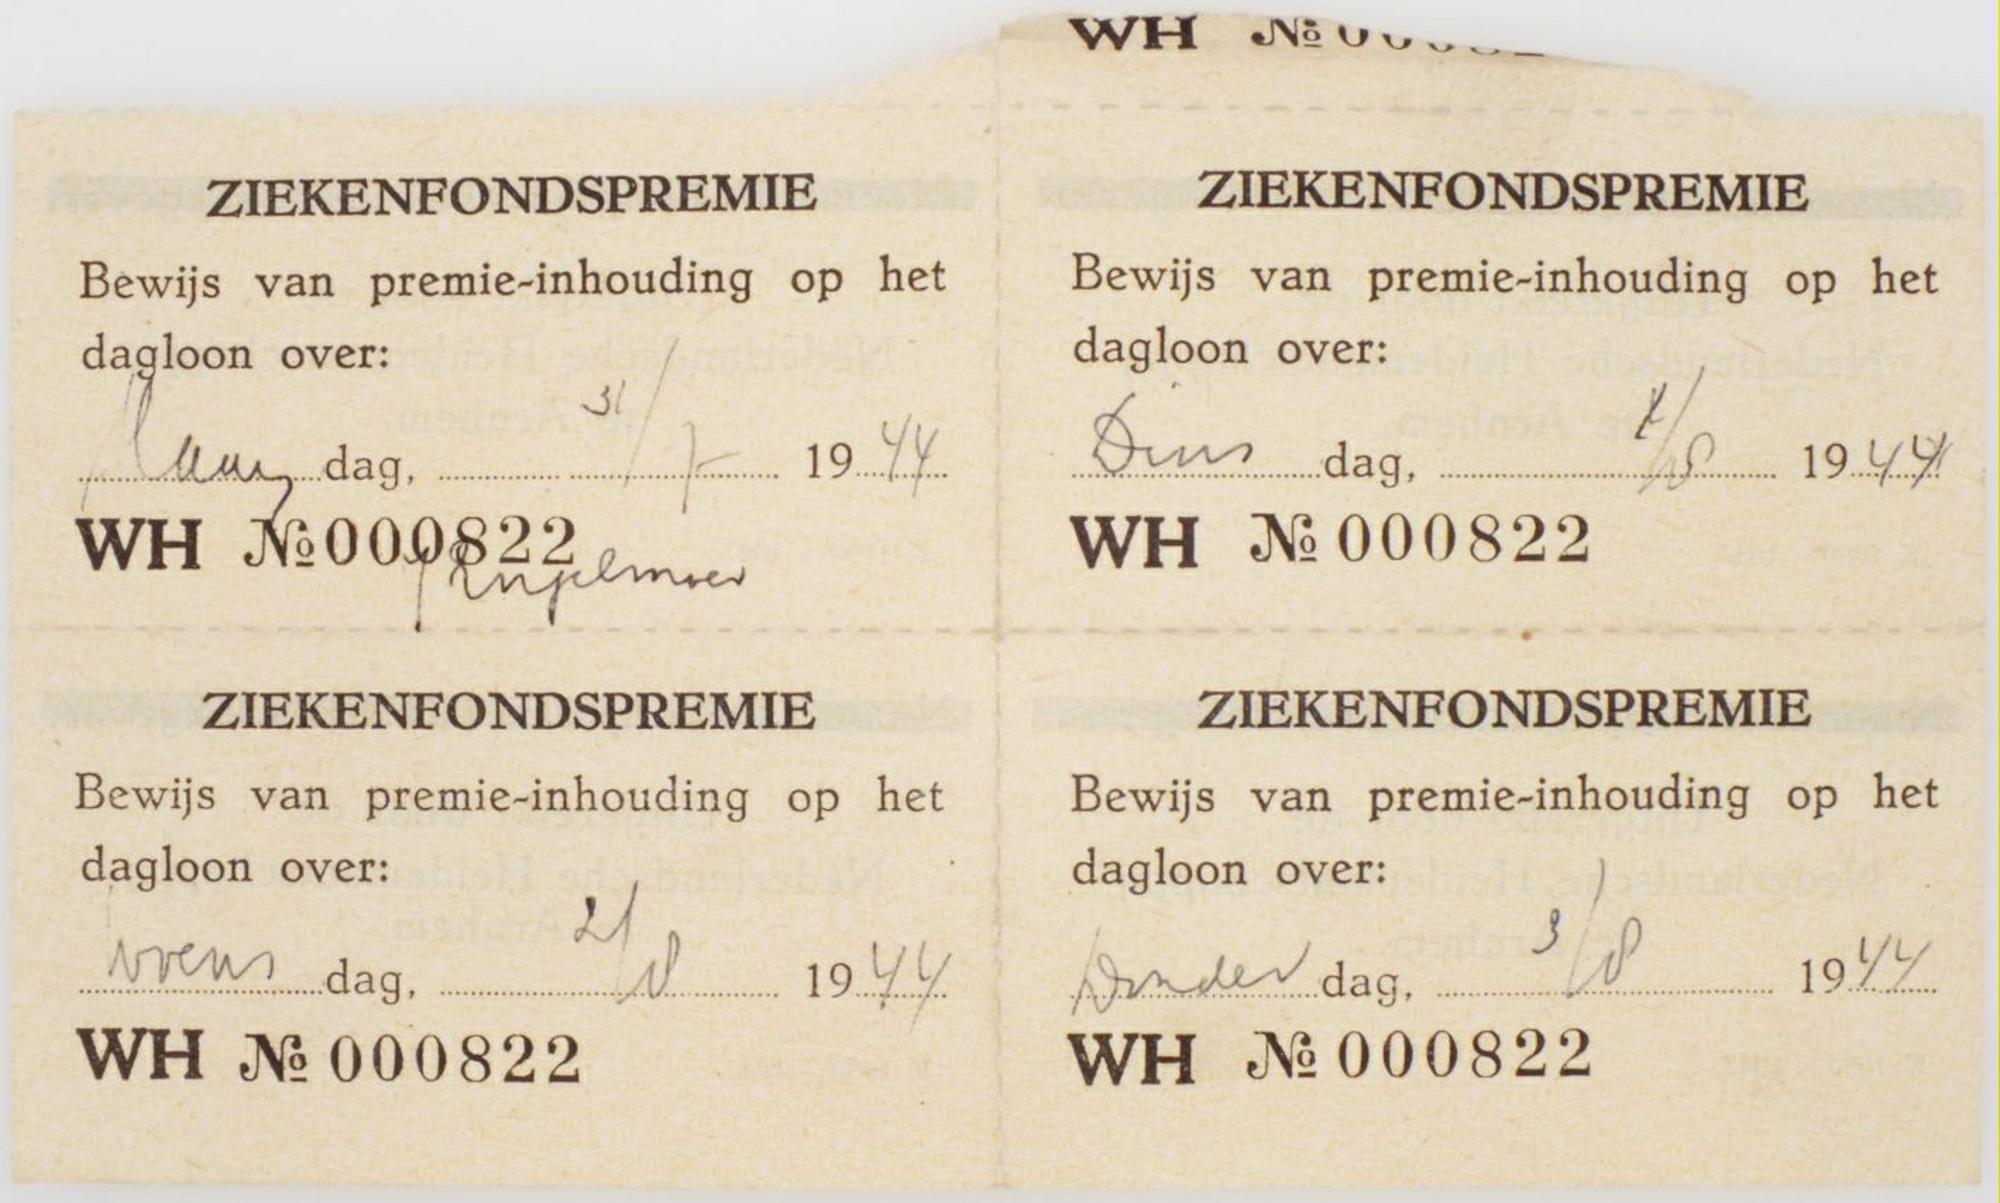 WH №
ZIEKENFONDSPREMIE
Bewijs van premie-inhouding op het
dagloon over:
Maandag, 31/7 1944
WH № 000822
ZIEKENFONDSPREMIE
Bewijs van premie-inhouding op het
dagloon over:
Dinsdag, 1/8 1944
WH № 000822
ZIEKENFONDSPREMIE
Bewijs van premie-inhouding op het
dagloon over:
Woensdag, 2/8 1944
WH № 000822
ZIEKENFONDSPREMIE
Bewijs van premie-inhouding op het
dagloon over:
Donderdag, 3/8 1944
WH № 000822